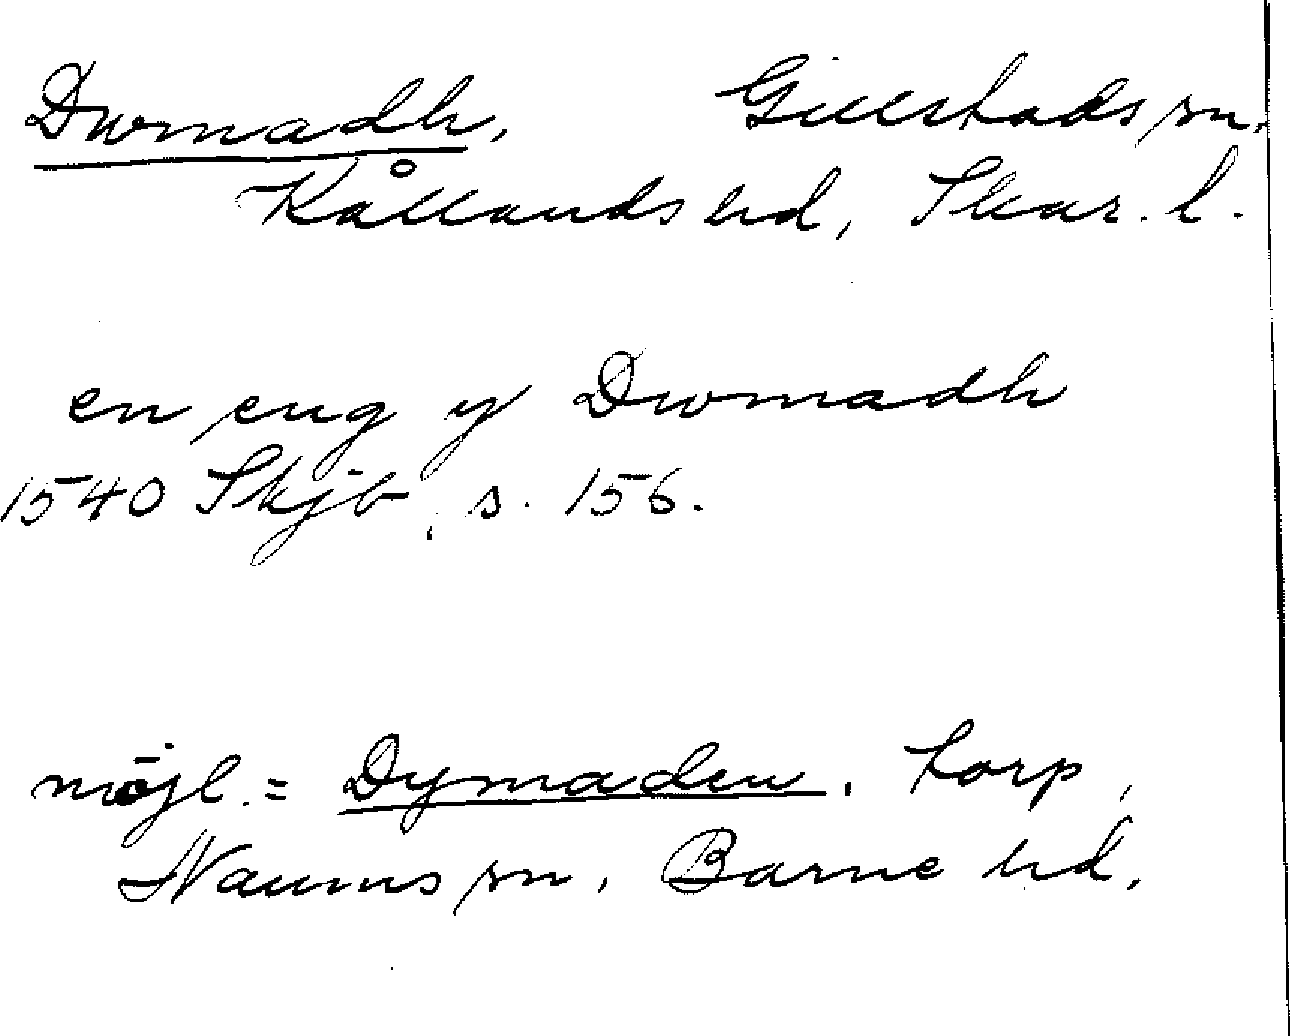 Dwmadh, Gillstads sn.
Kållands hd, Skar. l.
en eng y Dwmadh
1540 Skjb, s. 156.
möjl. = Dymaden. Torp,
Naums sn, Barne hd.